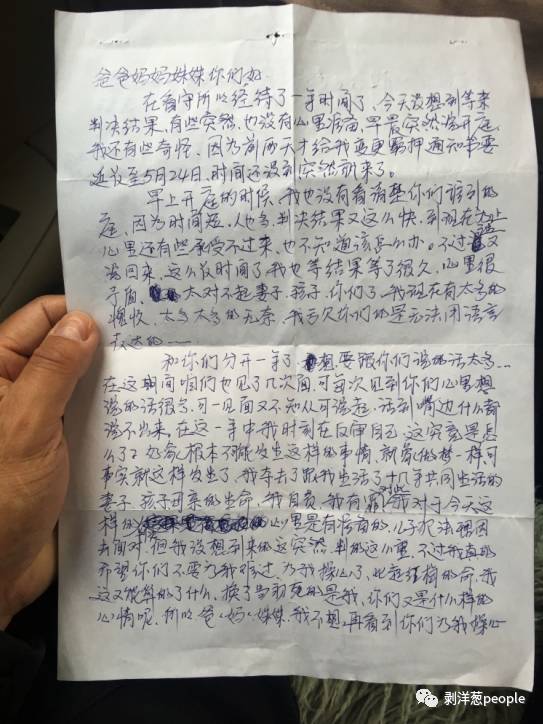 爸爸妈妈妹妹你们好
在看守所已经待了一年时间了，今天没想到等来
判决结果，有些突然，也没有心里准备，早晨突然说开庭，
我还有些奇怪，因为前两天才给我变更羁押通知书要
延长至5月24日，时间还没到突然就来了。
早上开庭的时候，我也没有看清楚你们谁到的
庭，因为时间短，人也多，判决结果又这么快，到现在为止
心里还有些承受不过来，也不知道该怎么办。不过话又
说回来，这么长时间了，我也等结果等了很久，心里很
矛盾，太对不起妻子，孩子，你们了，我现在有太多的
悔恨，太多太多的无奈，我亏欠你们的是无法用语言
表达的……
和你们分开一年了，想要跟你们说的话太多…
在这期间咱们也见了几次面，可每次见到你们心里想
说的话很多，可一见面又不知从何说起，话到嘴边什么都
说不出来，在这一年中我时刻在反审自己，这究竟是怎
么了？如命根本不能发生这样的事情，就象做梦一样可
事实就这样发生了，我夺去了跟我生活了十几年共同生活的
妻子，孩子母亲的生命，我自责，我有罪，我对于今天这
样的心里是有准备的，儿子犯法理因
去面对，但我没想到来的这突然，判的这么重，不过我真的
希望你们不要为我难过，为我操心了，比起结梅的命，我
这又能算的了什么，换了当初死的是我，你们又是什么样的
心情呢，所以爸，妈，妹妹，我不想再看到你们为我操心
剥洋葱people